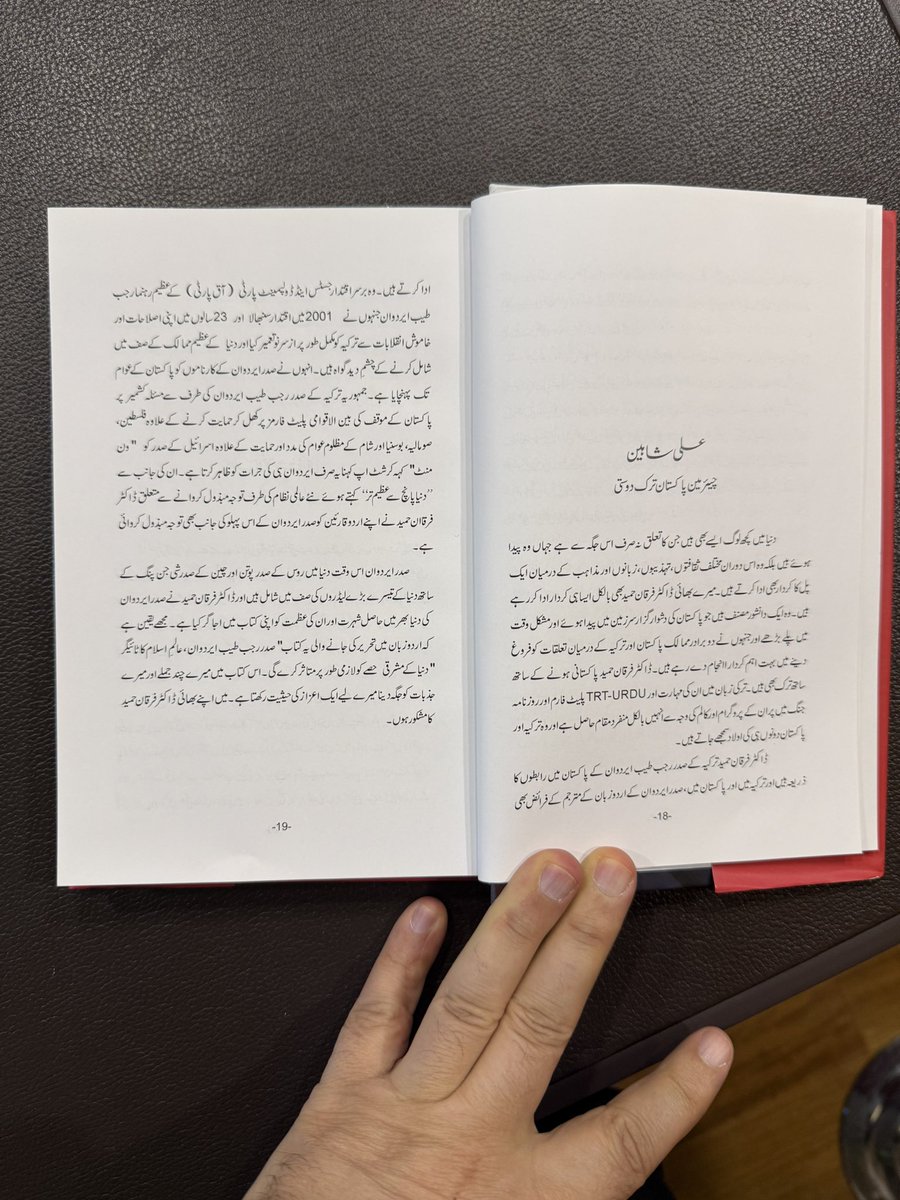 علی شاہین
چیئرمین پاکستان ترک دوستی
دنیا میں کچھ لوگ ایسے بھی ہیں جن کا تعلق نہ صرف اس جگہ سے ہے جہاں وہ پیدا
ہوئے ہیں بلکہ وہ اس دوران مختلف ثقافتوں، تہذیبوں، زبانوں اور مذاہب کے درمیان ایک
پل کا کردار بھی ادا کرتے ہیں۔ میرے بھائی ڈاکٹر فرقان حمید بھی بالکل ایسا ہی کردار ادا کر رہے
ہیں۔ وہ ایک دانشور مصنف ہیں جو پاکستان کی دشوار گزار سرزمین میں پیدا ہوئے اور مشکل وقت
میں پلے بڑھے اور جنہوں نے دو برادر ممالک پاکستان اور ترکیہ کے درمیان تعلقات کو فروغ
دینے میں بہت اہم کردار انجام دے رہے ہیں۔ ڈاکٹر فرقان حمید پاکستانی ہونے کے ساتھ
ساتھ ترک بھی ہیں۔ ترکی زبان میں ان کی مہارت اور TRT-URDU پلیٹ فارم اور روزنامہ
جنگ میں پر ان کے پروگرام اور کالم کی وجہ سے انہیں بالکل منفرد مقام حاصل ہے اور وہ ترکیہ اور
پاکستان دونوں ہی کی اولاد سمجھے جاتے ہیں۔
ڈاکٹر فرقان حمید ترکیہ کے صدر رجب طیب ایردوان کے پاکستان میں رابطوں کا
ذریعہ ہیں اور ترکیہ میں اور پاکستان میں، صدر ایردوان کے اردو زبان کے مترجم کے فرائض بھی
-18-
ادا کرتے ہیں۔ وہ برسر اقتدار جسٹس اینڈ ڈولپمینٹ پارٹی (آق پارٹی) کے عظیم رہنما رجب
طیب ایردوان جنہوں نے 2001 میں اقتدار سنبھالا اور 23 سالوں میں اپنی اصلاحات اور
خاموش انقلابات سے ترکیہ کو مکمل طور پر از سر نو تعمیر کیا اور دنیا کے عظیم ممالک کے صف میں
شامل کرنے کے چشم دید گواہ ہیں۔ انہوں نے صدر ایردوان کے کارناموں کو پاکستان کے عوام
تک پہنچایا ہے۔ جمہوریہ ترکیہ کے صدر رجب طیب ایردوان کی طرف سے مسئلہ کشمیر پر
پاکستان کے موقف کی بین الاقوامی پلیٹ فارمز پر کھل کر حمایت کرنے کے علاوہ فلسطین،
صومالیہ، بوسنیا اور شام کے مظلوم عوام کی مدد اور حمایت کے علاوہ اسرائیل کے صدر کو "ون
منٹ" کہہ کر شٹ اپ کہنا یہ صرف ایردوان ہی کی جرات کو ظاہر کرتا ہے۔ ان کی جانب سے
’’دنیا پانچ سے عظیم تر‘‘ کہتے ہوئے نئے عالمی نظام کی طرف توجہ مبذول کروانے سے متعلق ڈاکٹر
فرقان حمید نے اپنے اردو قارئین کو صدر ایردوان کے اس پہلو کی جانب بھی توجہ مبذول کروائی
ہے۔
صدر ایردوان اس وقت دنیا میں روس کے صدر پوتن اور چین کے صدر شی جن پنگ کے
ساتھ دنیا کے تیسرے بڑے لیڈروں کی صف میں شامل ہیں اور ڈاکٹر فرقان حمید نے صدر ایردوان
کی دنیا بھر میں حاصل شہرت اور ان کی عظمت کو اپنی کتاب میں اجاگر کیا ہے۔ مجھے یقین ہے
کہ اردو زبان میں تحریر کی جانے والی یہ کتاب "صدر رجب طیب ایردوان، عالمِ اسلام کا ٹائیگر
"دنیا کے مشرقی حصے کو لازی طور پر متاثر کرے گی۔ اس کتاب میں میرے چند جملے اور میرے
جذبات کو جگہ دینا میرے لیے ایک اعزاز کی حیثیت رکھتا ہے۔ میں اپنے بھائی ڈاکٹر فرقان حمید
کا مشکور ہوں۔
-19-